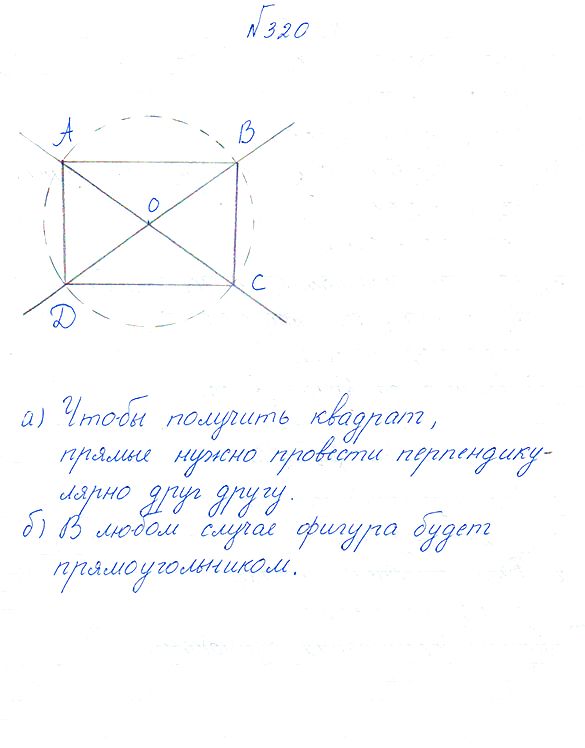 №320
A B
O
D C
а) Чтобы получить квадрат,
прямые нужно провести перпендику-
лярно друг другу.
б) В любом случае фигура будет
прямоугольником.